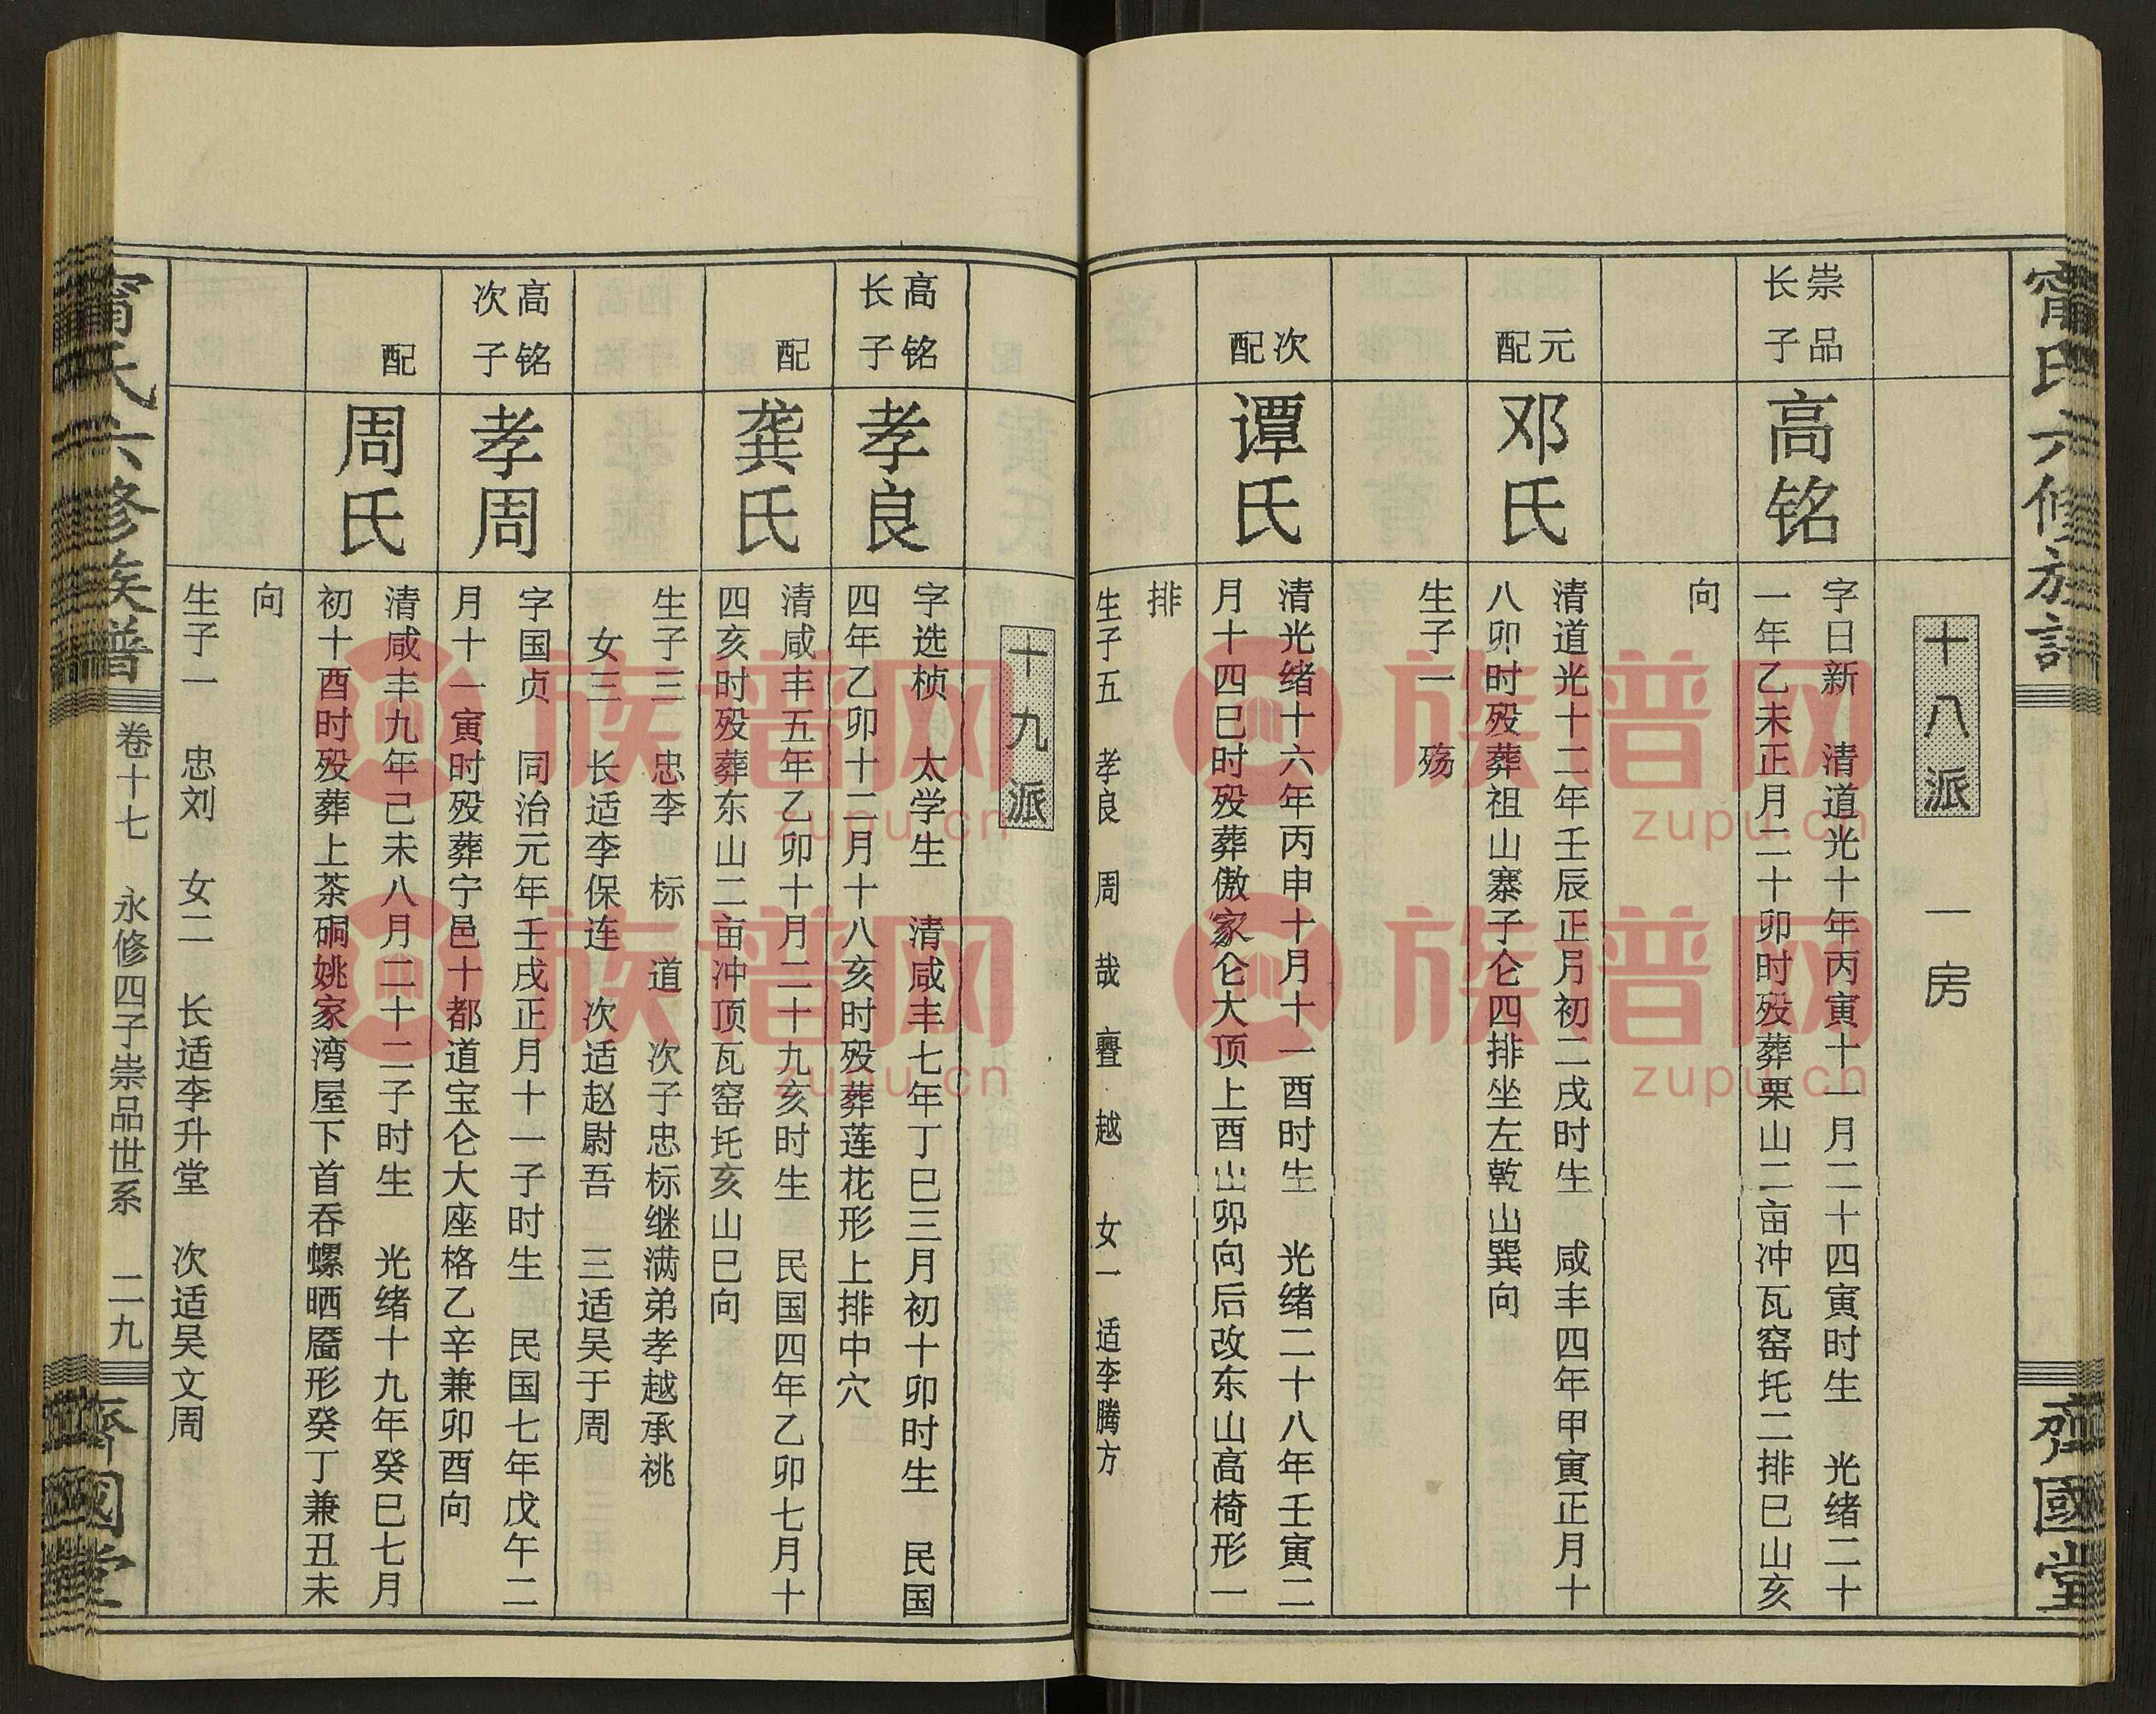 甯氏六修族谱
齊國堂
十八派 一房
崇品
长子
高铭
字日新 清道光十年丙寅十一月二十四寅时生 光绪二十
一年乙未正月二十卯时殁葬栗山二亩冲瓦窑托二排巳山亥
向
元
配
邓氏
清道光十二年壬辰正月初二戌时生 咸丰四年甲寅正月十
八卯时殁葬祖山寨子仑四排坐左乾山巽向
生子一 殇
次
配
谭氏
清光绪十六年丙申十月十一酉时生 光绪二十八年壬寅二
月十四巳时殁葬傲家仑大顶上酉山卯向后改东山高椅形一
排
生子五 孝良 周 哉 亹 越 女一 适李腾方
十九派
高铭
长子
孝良
字选桢 太学生 清咸丰七年丁巳三月初十卯时生 民国
四年乙卯十二月十八亥时殁葬莲花形上排中穴
配
龚氏
清咸丰五年乙卯十月二十九亥时生 民国四年乙卯七月十
四亥时殁葬东山二亩冲顶瓦窑托亥山巳向
生子三 忠李 标 道 次子忠标继满弟孝越承祧
女三 长适李保连 次适赵尉吾 三适吴于周
高铭
次子
孝周
字国贞 同治元年壬戌正月十一子时生 民国七年戊午二
月十一寅时殁葬宁邑十都道宝仑大座格乙辛兼卯酉向
配
周氏
清咸丰九年己未八月二十二子时生 光绪十九年癸巳七月
初十酉时殁葬上茶硐姚家湾屋下首吞螺晒靥形癸丁兼丑未
向
生子一 忠刘 女二 长适李升堂 次适吴文周
甯氏六修族谱
卷十七 永修四子崇品世系 二九
齊國堂
族谱网
zupu.cn
族谱网
zupu.cn
族谱网
zupu.cn
族谱网
zupu.cn